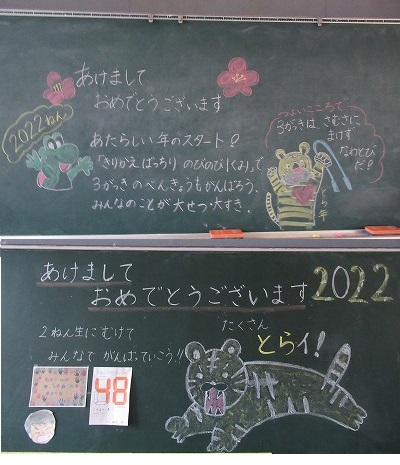 あけまして
おめでとうございます
2022ねん
あたらしい年のスタート!
「きりかえばっちり のびのび1くみ」で
3がっきのべんきょうもがんばろう。
みんなのことが大せつ・大すき。
つよいこころで
3がっきは、さむさに
まけず
なわとび
だ!
とら年
あけまして
おめでとうございます 2022
2ねん生にむけて
みんなで がんばっていこう!!
たくさん
とらイ!
48